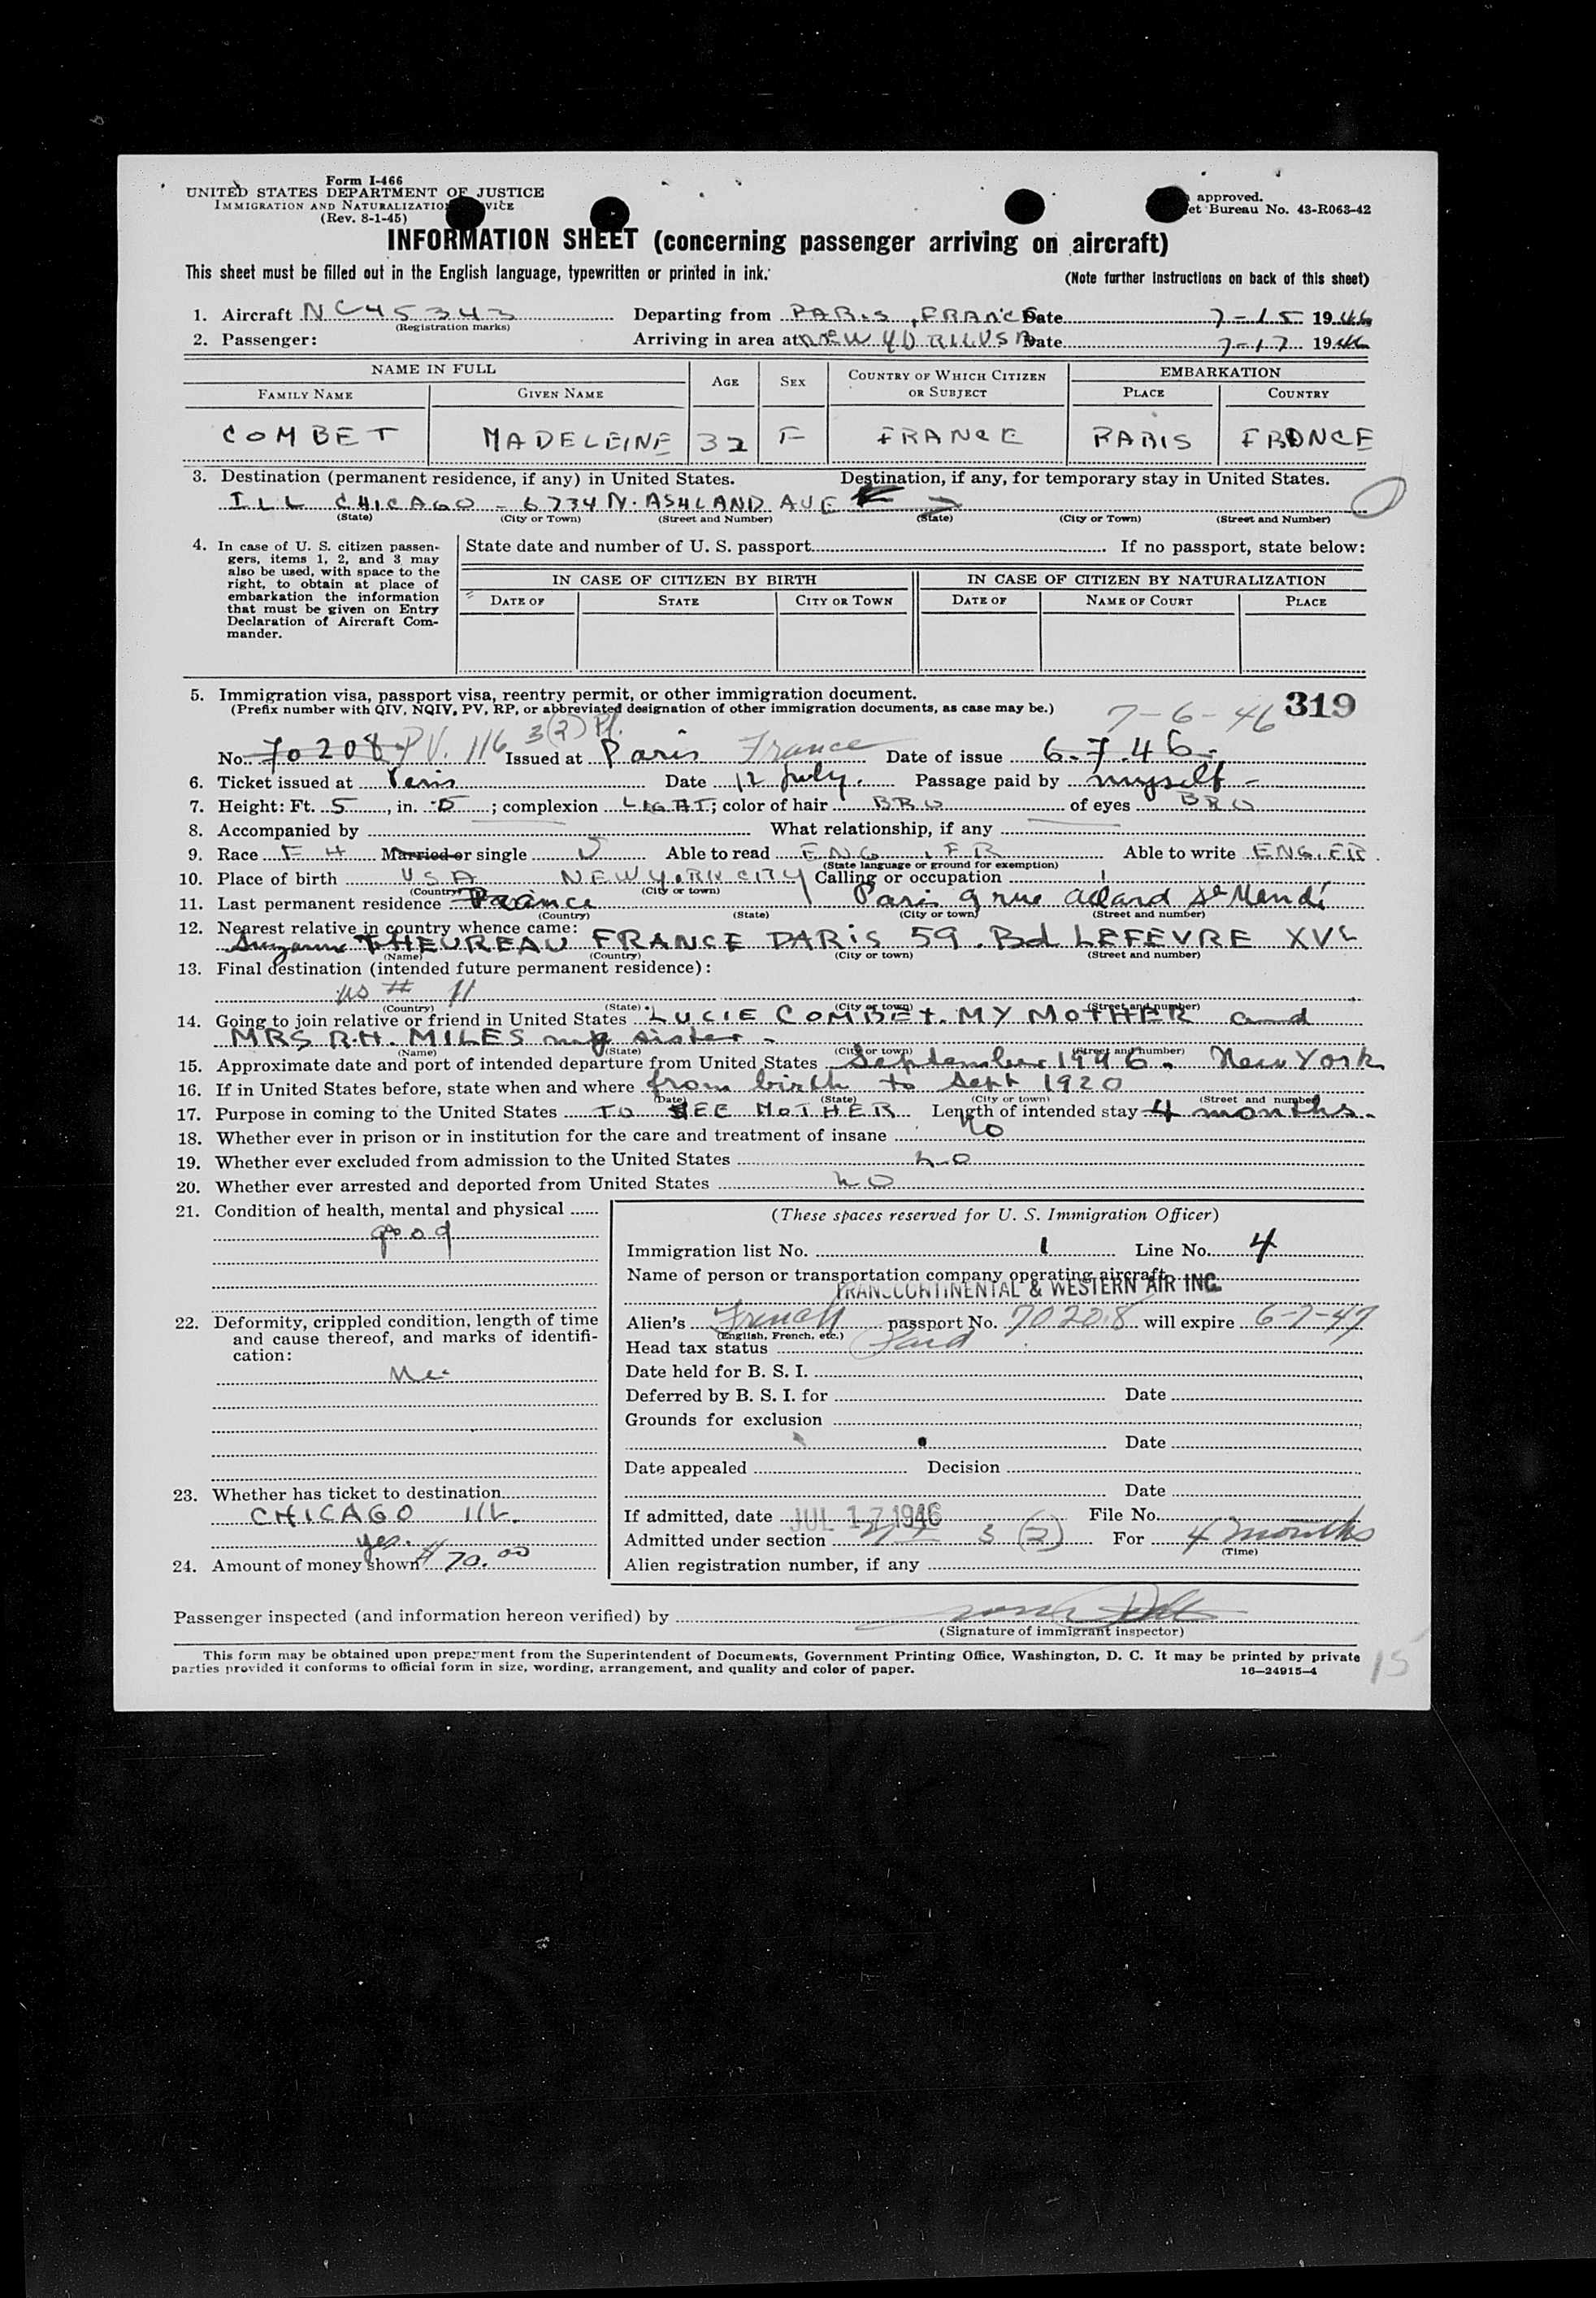 Form I-466
UNITED STATES DEPARTMENT OF JUSTICE
IMMIGRATION AND NATURALIZATION
(Rev. 8-1-45)
approved.
et Bureau No. 43-R063-42
INFORMATION SHEET (concerning passenger arriving on aircraft)
This sheet must be filled out in the English language, typewritten or printed in ink.
(Note further instructions on back of this sheet)
1. Aircraft NC45343 Departing from PARIS, FRANCE Date 7-15 1946
(Registration marks)
2. Passenger: Arriving in area at NEW YORK USA Date 7-17 1946
NAME IN FULL AGE SEX COUNTRY OF WHICH CITIZEN OR SUBJECT EMBARKATION
FAMILY NAME GIVEN NAME PLACE COUNTRY
COMBET MADELEINE 32 F FRANCE PARIS FRANCE
3. Destination (permanent residence, if any) in United States. Destination, if any, for temporary stay in United States.
ILL CHICAGO - 6734 N. ASHLAND AVE
(State) (City or Town) (Street and Number) (State) (City or Town) (Street and Number)
4. In case of U. S. citizen passengers, items 1, 2, and 3 may also be used, with space to the right, to obtain at place of embarkation the information that must be given on Entry Declaration of Aircraft Commander.
State date and number of U. S. passport If no passport, state below:
IN CASE OF CITIZEN BY BIRTH IN CASE OF CITIZEN BY NATURALIZATION
DATE OF STATE CITY OR TOWN DATE OF NAME OF COURT PLACE
5. Immigration visa, passport visa, reentry permit, or other immigration document. 319
(Prefix number with QIV, NQIV, PV, RP, or abbreviated designation of other immigration documents, as case may be.) 7-6-46
3(2)
No. 70208 PV. 116 Issued at Paris France Date of issue 6.7.46.
6. Ticket issued at Paris Date 12 July. Passage paid by myself -
7. Height: Ft. 5, in. 5; complexion LIGHT; color of hair BRO of eyes BRO
8. Accompanied by What relationship, if any
9. Race FH Married or single S Able to read ENG, FR Able to write ENG, FR
(State language or ground for exemption)
10. Place of birth USA NEW YORK CITY Calling or occupation
(Country) (City or town)
11. Last permanent residence France Paris 9 rue Allard St Mandé
(Country) (State) (City or town) (Street and number)
12. Nearest relative in country whence came:
Suzanne THEUREAU FRANCE PARIS 59. Bd LEFEVRE XVe
(Name) (Country) (City or town) (Street and number)
13. Final destination (intended future permanent residence):
as # 11
(Country) (State) (City or town) (Street and number)
14. Going to join relative or friend in United States LUCIE COMBET. MY MOTHER and
MRS R.H. MILES my sister -
(Name) (State) (City or town) (Street and number)
15. Approximate date and port of intended departure from United States September 1946. New York
16. If in United States before, state when and where from birth to Sept 1920
(Date) (State) (City or town) (Street and number)
17. Purpose in coming to the United States TO SEE MOTHER Length of intended stay 4 months.
18. Whether ever in prison or in institution for the care and treatment of insane No
19. Whether ever excluded from admission to the United States no
20. Whether ever arrested and deported from United States no
21. Condition of health, mental and physical
good
22. Deformity, crippled condition, length of time and cause thereof, and marks of identification:
23. Whether has ticket to destination
CHICAGO ILL.
yes.
24. Amount of money shown $70.00
(These spaces reserved for U. S. Immigration Officer)
Immigration list No. 1 Line No. 4
Name of person or transportation company operating aircraft
TRANSCONTINENTAL & WESTERN AIR INC.
Alien's French passport No. 70208 will expire 6-7-47
(English, French, etc.)
Head tax status Paid
Date held for B. S. I.
Deferred by B. S. I. for Date
Grounds for exclusion
Date
Date appealed Decision
Date
If admitted, date JUL 17 1946 File No.
Admitted under section 3 (2) For 4 months
(Time)
Alien registration number, if any
Passenger inspected (and information hereon verified) by
(Signature of immigrant inspector)
This form may be obtained upon prepayment from the Superintendent of Documents, Government Printing Office, Washington, D. C. It may be printed by private
parties provided it conforms to official form in size, wording, arrangement, and quality and color of paper. 16—24915-4
15